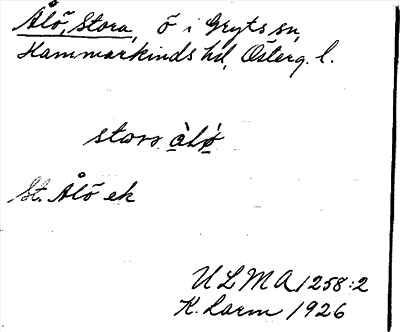 Ålö, Stora, ö i Gryts sn,
Hammarkinds hd, Österg. l.
stora ålö
St. Ålö ek
ULMA 1258:2
K. Larm 1926